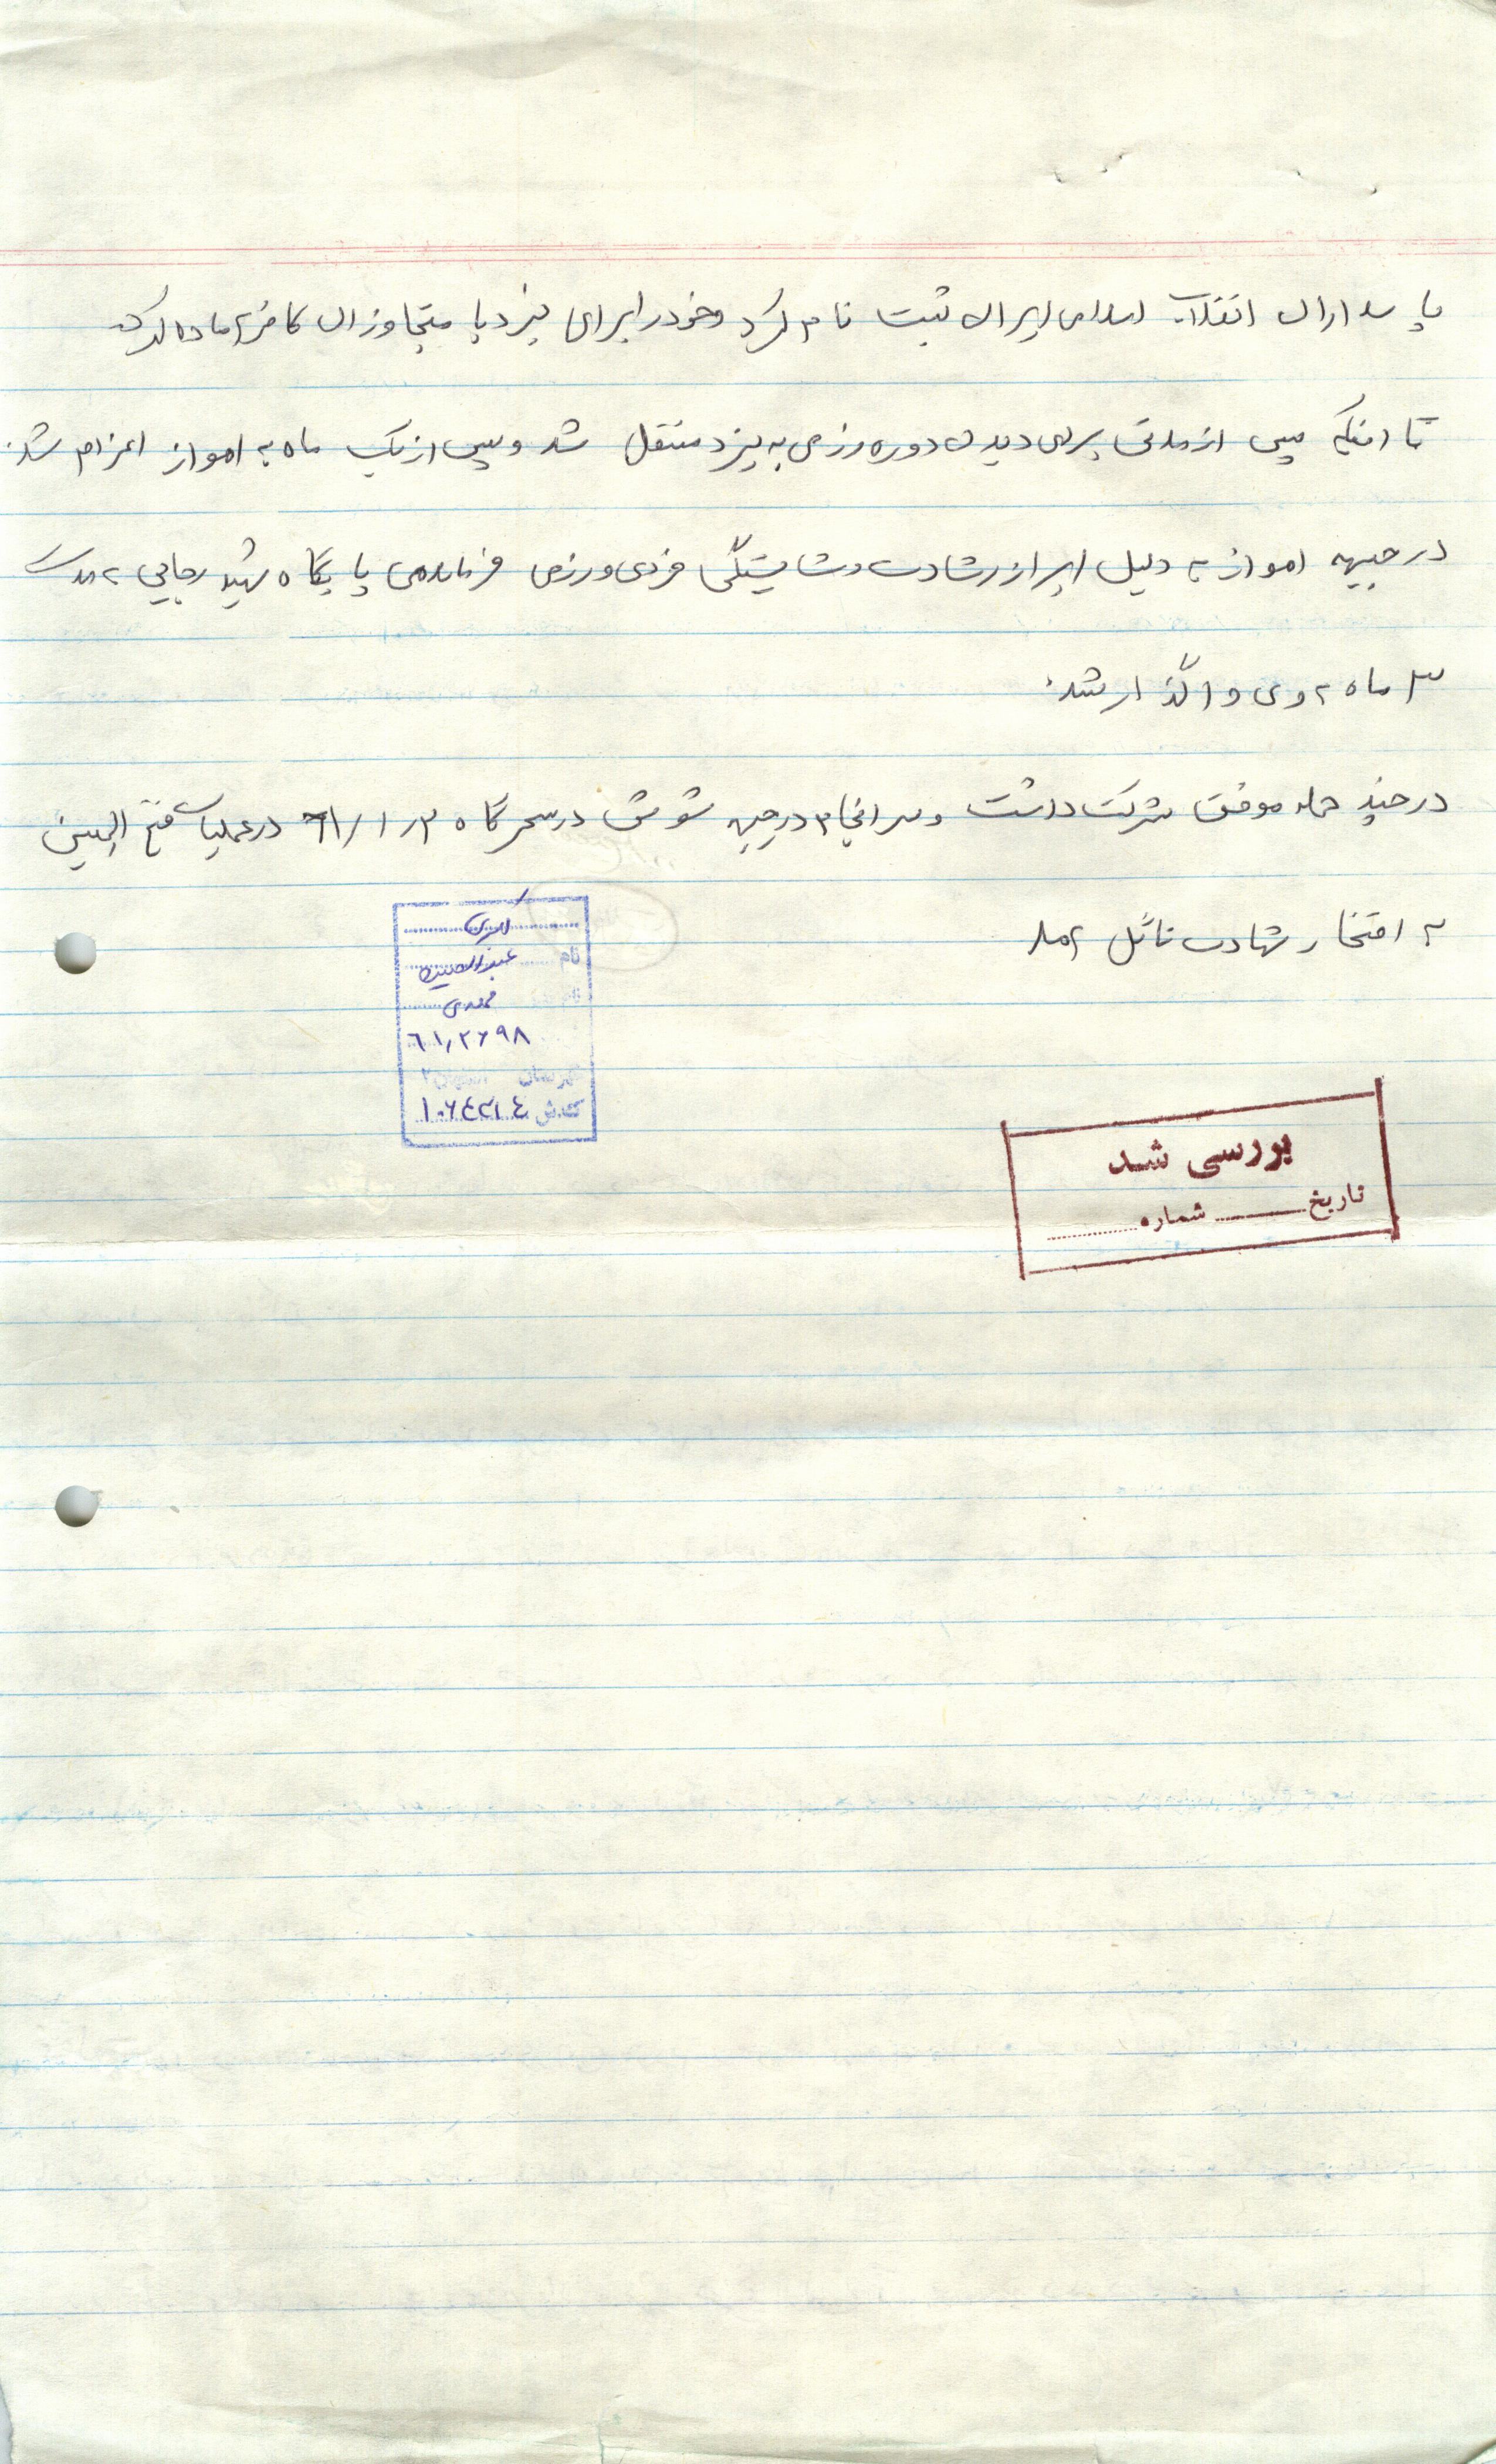 پاسداران انقلاب اسلامی ایران ثبت نام کرد و خود را برای نبرد با متجاوزان کافر آماده کرد
تا اینکه پس از مدتی برای دیدن دوره رزمی به یزد منتقل شد و پس از یک ماه به اهواز اعزام شد.
در جبهه اهواز به دلیل ابراز رشادت و شایستگی فردی و رزمی فرماندهی پایگاه شهید رجایی به مدت
۳ ماه به وی واگذار شد.
در چند حمله موفق شرکت داشت و سرانجام در جبهه شوش در سحرگاه ۳/۱/۶۱ در عملیات فتح المبین
به افتخار شهادت نائل آمد
نام عبدالحسین
مهدی
۶۱,۲۶۹۸
شهرستان اصفهان ۲
کد ش ۱۰۶۴۳۱۴
بررسی شد
تاریخ شماره